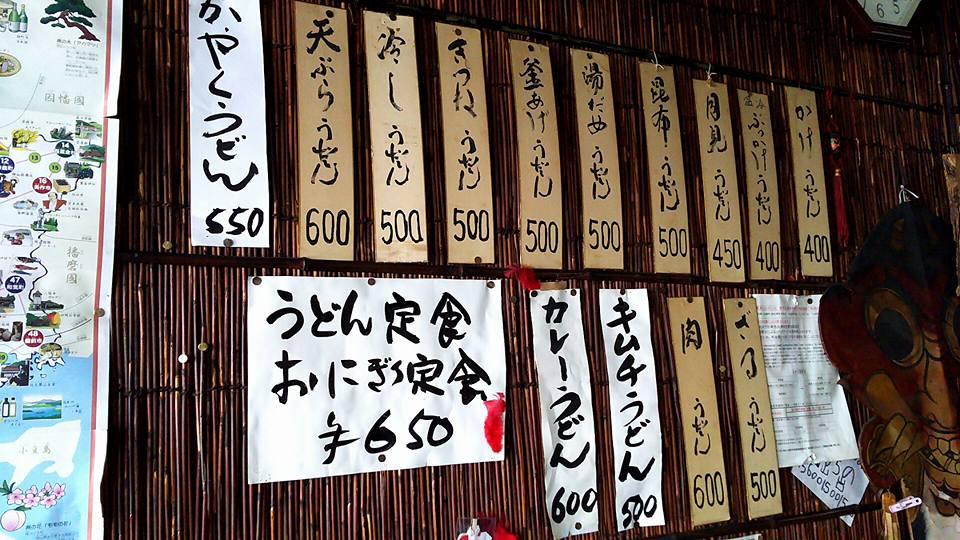 かけ うどん 400
ぶっかけ うどん 400
月見 うどん 450
昆布 うどん 500
湯だめ うどん 500
釜あげ うどん 500
きつね うどん 500
冷し うどん 500
天ぷら うどん 600
かやくうどん 550
ざる うどん 500
肉 うどん 600
キムチうどん 500
カレーうどん 600
うどん定食
おにぎり定食
¥650
因幡國
播磨國
小豆島